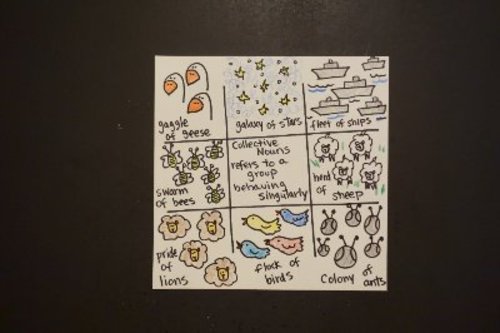 gaggle
of geese
galaxy of stars
fleet of ships
swarm
of bees
Collective
Nouns
refers to a
group
behaving
singularly
herd
of
sheep
pride
of
lions
flock of
birds
Colony of
ants